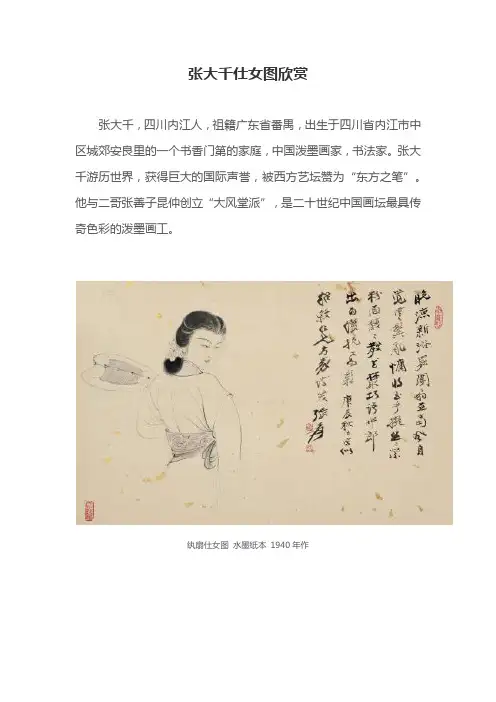 张大千仕女图欣赏
张大千，四川内江人，祖籍广东省番禺，出生于四川省内江市中
区城郊安良里的一个书香门第的家庭，中国泼墨画家，书法家。张大
千游历世界，获得巨大的国际声誉，被西方艺坛赞为“东方之笔”。
他与二哥张善子昆仲创立“大风堂派”，是二十世纪中国画坛最具传
奇色彩的泼墨画工。
晚涼新浴
庚辰秋
張爰
纨扇仕女图 水墨纸本 1940年作